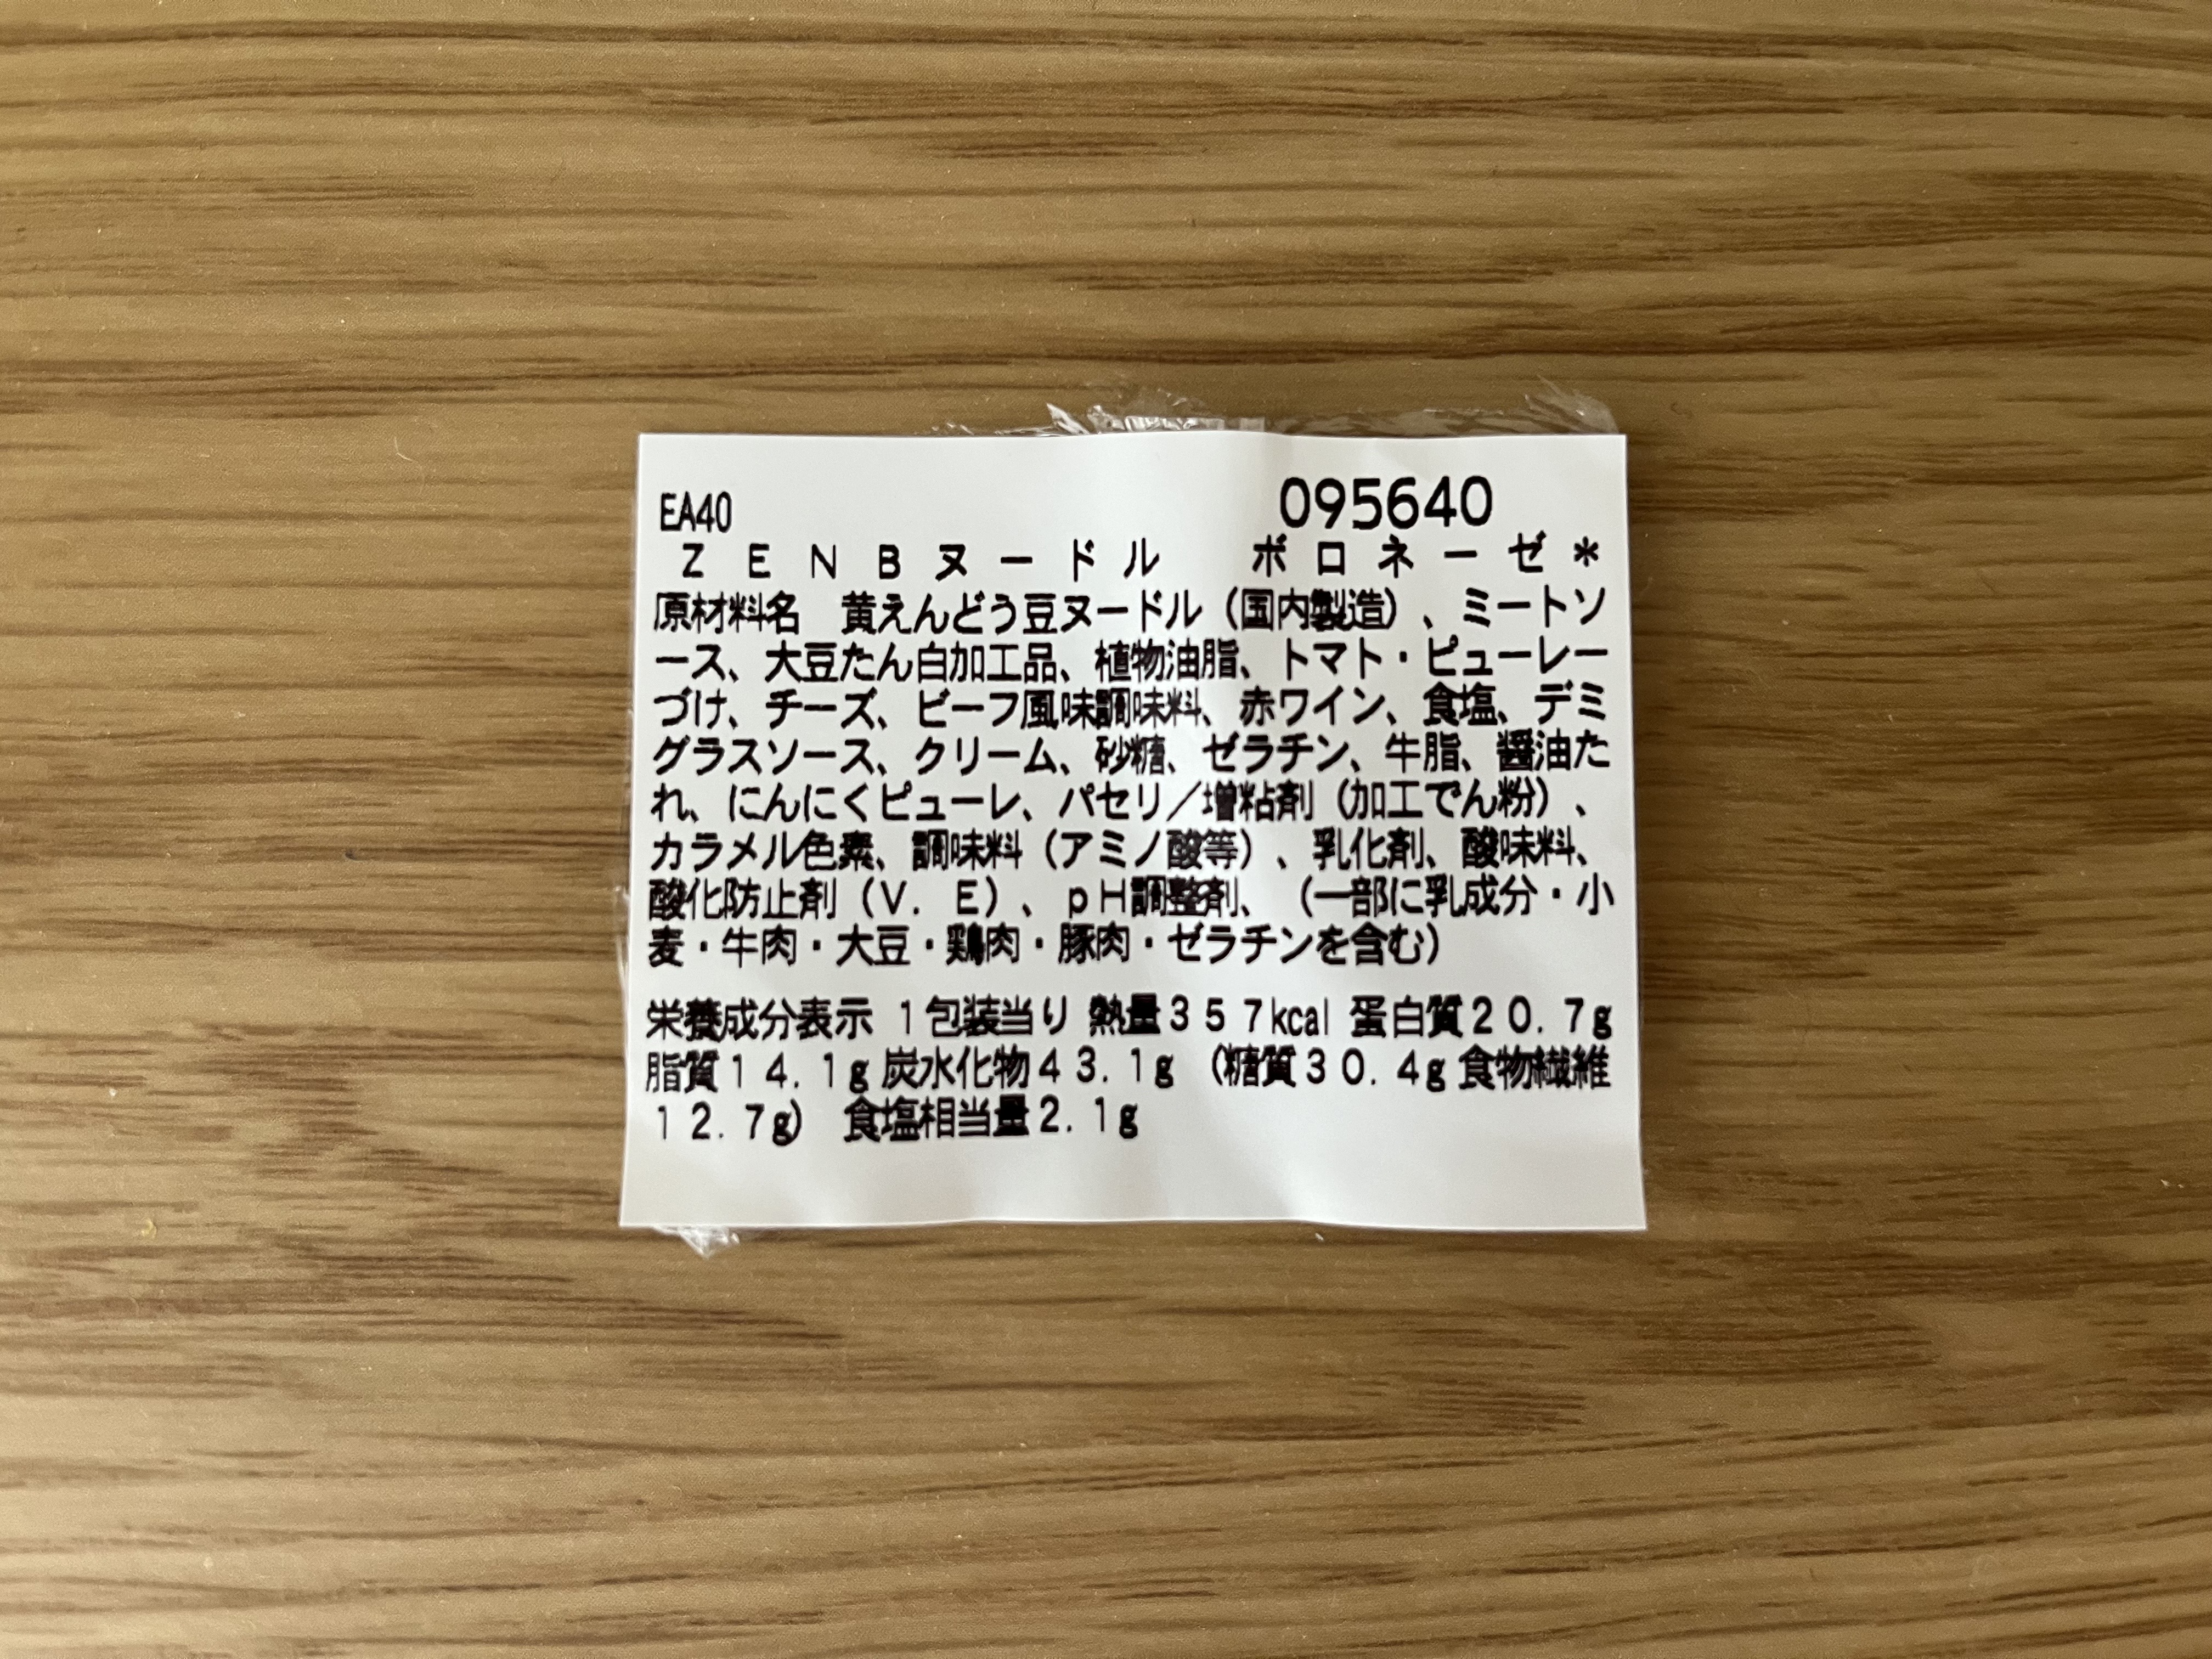 EA40 095640
ZENBヌードル ボロネーゼ*
原材料名 黄えんどう豆ヌードル(国内製造)、ミートソ
ース、大豆たん白加工品、植物油脂、トマト・ピューレー
づけ、チーズ、ビーフ風味調味料、赤ワイン、食塩、デミ
グラスソース、クリーム、砂糖、ゼラチン、牛脂、醤油た
れ、にんにくピューレ、パセリ/増粘剤(加工でん粉)、
カラメル色素、調味料(アミノ酸等)、乳化剤、酸味料、
酸化防止剤(V.E)、pH調整剤、(一部に乳成分・小
麦・牛肉・大豆・鶏肉・豚肉・ゼラチンを含む)
栄養成分表示 1包装当り 熱量357kcal 蛋白質20.7g
脂質14.1g 炭水化物43.1g (糖質30.4g 食物繊維
12.7g) 食塩相当量2.1g